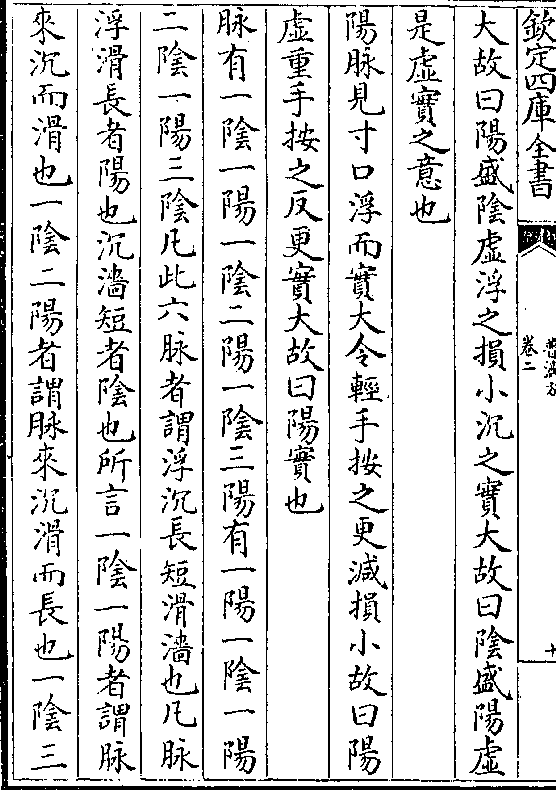 欽定四庫全書
普濟方
卷二
十
大故曰陽盛陰虛浮之損小沉之實大故曰陰盛陽虛
是虛實之意也
陽脉見寸口浮而實大今輕手按之更減損小故曰陽
虛重手按之反更實大故曰陽實也
脉有一陰一陽一陰二陽一陰三陽有一陽一陰一陽
二陰一陽三陰凡此六脉者謂浮沉長短滑濇也凡脉
浮滑長者陽也沉濇短者陰也所言一陰一陽者謂脉
來沉而滑也一陰二陽者謂脉來沉滑而長也一陰三